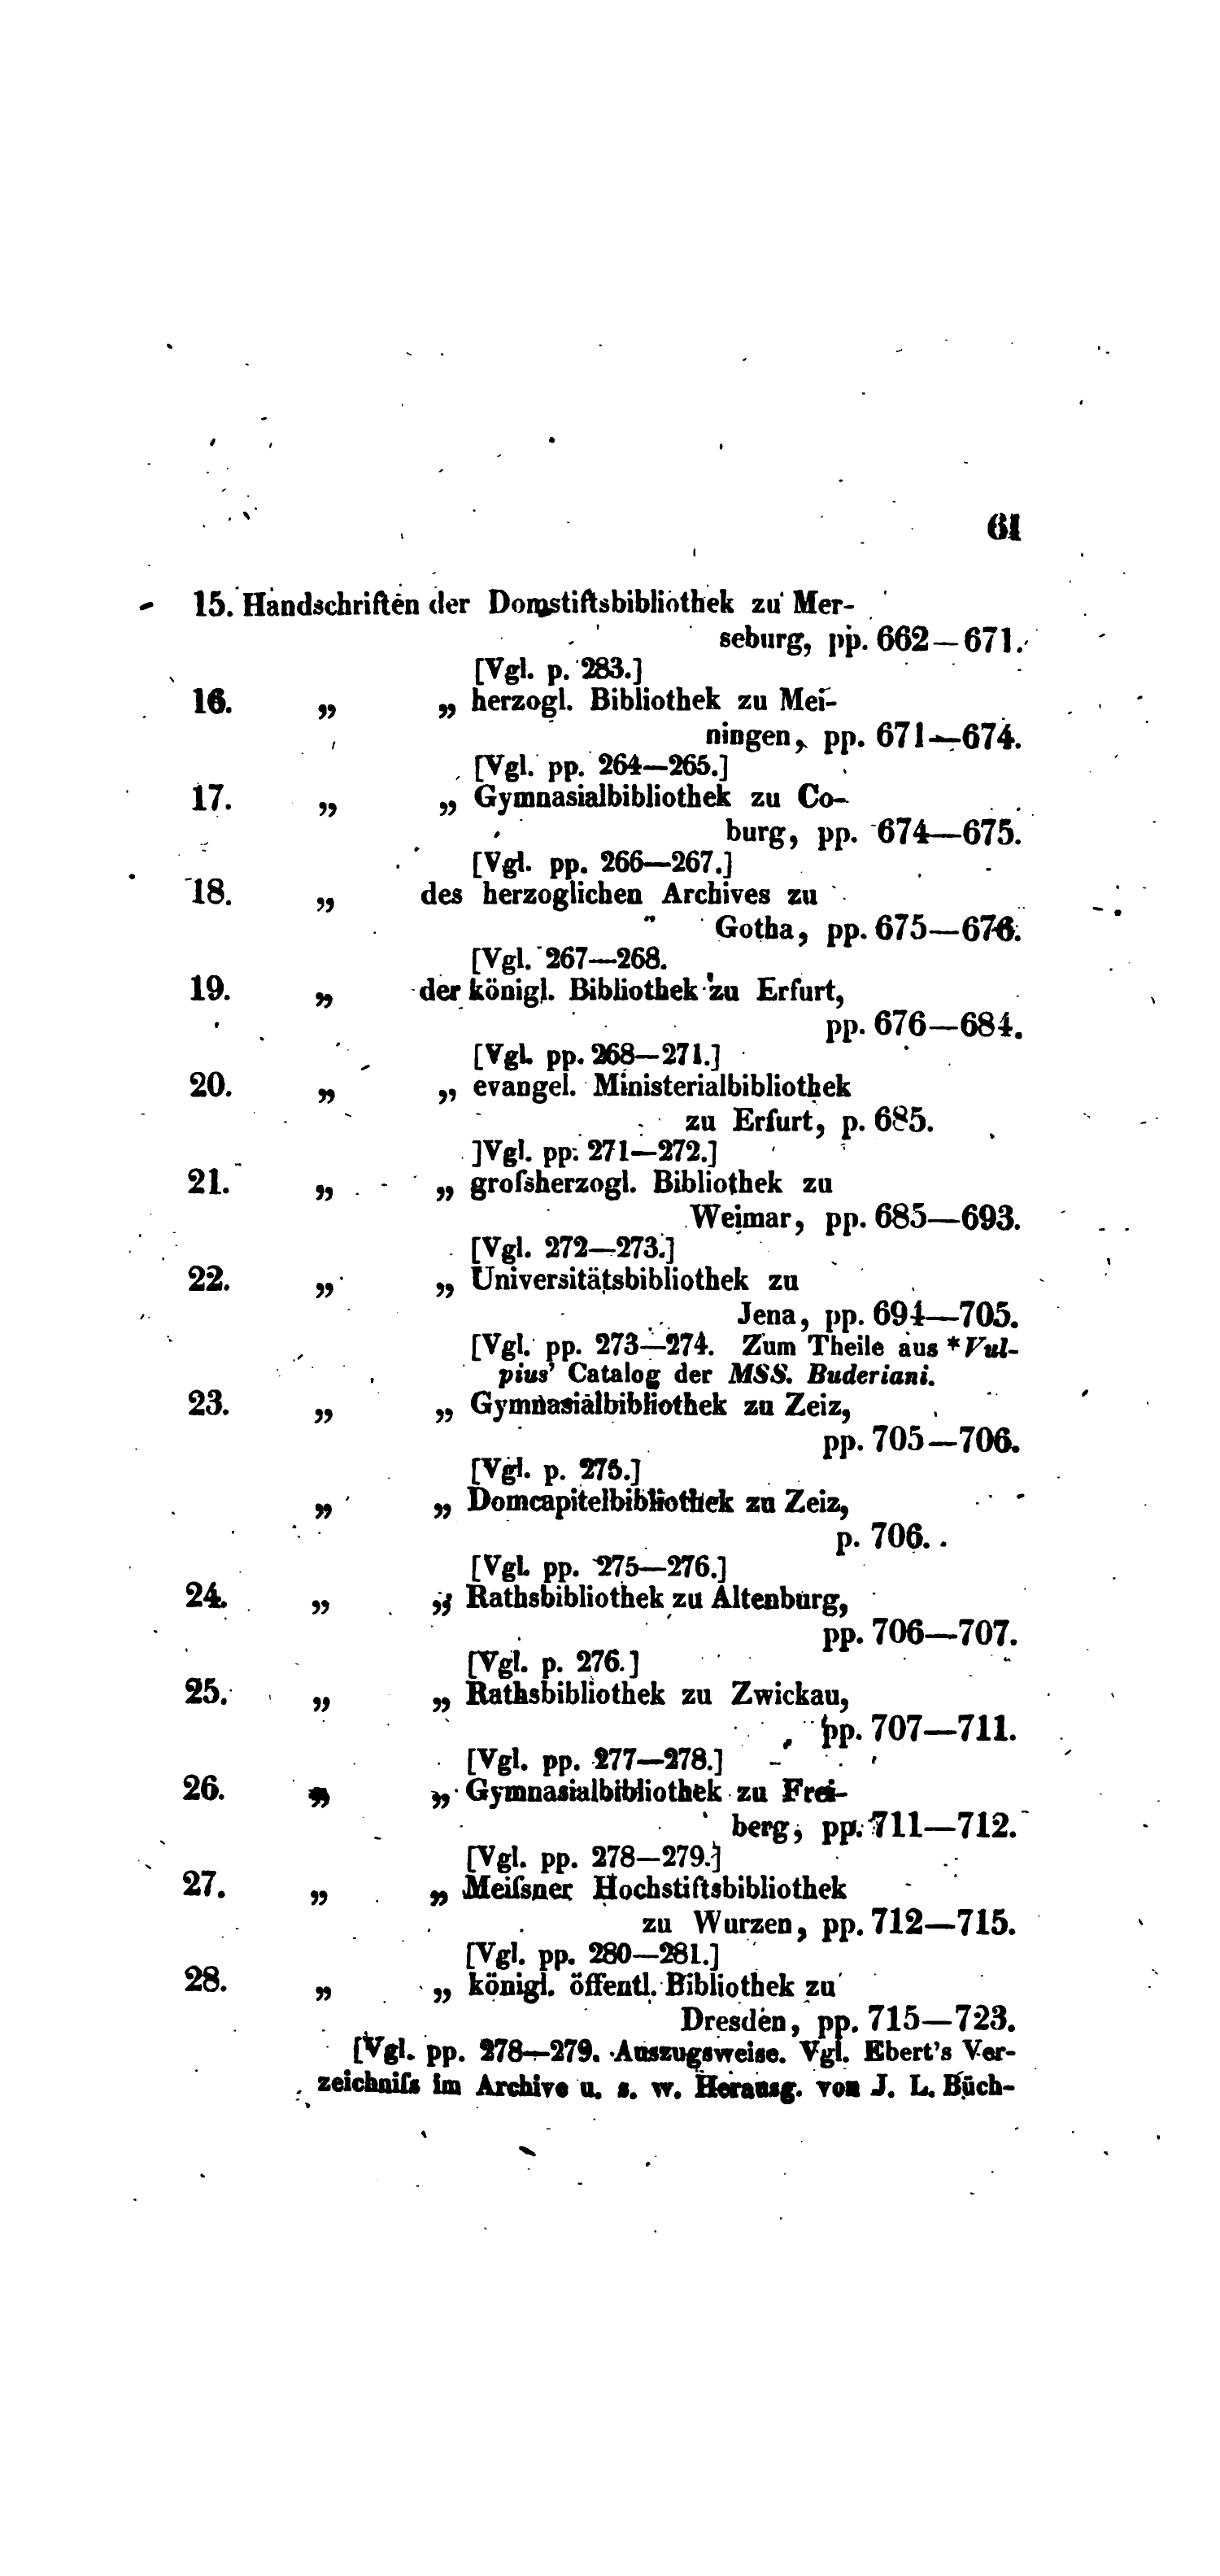 61
15. Handschriften der Domstiftsbibliothek zu Mer-
seburg, pp. 662—671.
[Vgl. p. 283.]
16. „ „ herzogl. Bibliothek zu Mei-
ningen, pp. 671—674.
[Vgl. pp. 264—265.]
17. „ „ Gymnasialbibliothek zu Co-
burg, pp. 674—675.
[Vgl. pp. 266—267.]
18. „ des herzoglichen Archives zu
Gotha, pp. 675—676.
[Vgl. 267—268.
19. „ der königl. Bibliothek zu Erfurt,
pp. 676—684.
[Vgl. pp. 268—271.]
20. „ „ evangel. Ministerialbibliothek
zu Erfurt, p. 685.
]Vgl. pp. 271—272.]
21. „ „ groſsherzogl. Bibliothek zu
Weimar, pp. 685—693.
[Vgl. 272—273.]
22. „ „ Universitätsbibliothek zu
Jena, pp. 694—705.
[Vgl. pp. 273—274. Zum Theile aus *Vul-
pius' Catalog der MSS. Buderiani.
23. „ „ Gymnasialbibliothek zu Zeiz,
pp. 705—706.
[Vgl. p. 275.]
„ „ Domcapitelbibliothek zu Zeiz,
p. 706.
[Vgl. pp. 275—276.]
24. „ „ Rathsbibliothek zu Altenburg,
pp. 706—707.
[Vgl. p. 276.]
25. „ „ Rathsbibliothek zu Zwickau,
pp. 707—711.
[Vgl. pp. 277—278.]
26. „ „ Gymnasialbibliothek zu Frei-
berg, pp. 711—712.
[Vgl. pp. 278—279.]
27. „ „ Meiſsner Hochstiftsbibliothek
zu Wurzen, pp. 712—715.
[Vgl. pp. 280—281.]
28. „ „ königl. öffentl. Bibliothek zu
Dresden, pp. 715—723.
[Vgl. pp. 278—279. Auszugsweise. Vgl. Ebert's Ver-
zeichniſs im Archive u. s. w. Herausg. von J. L. Büch-